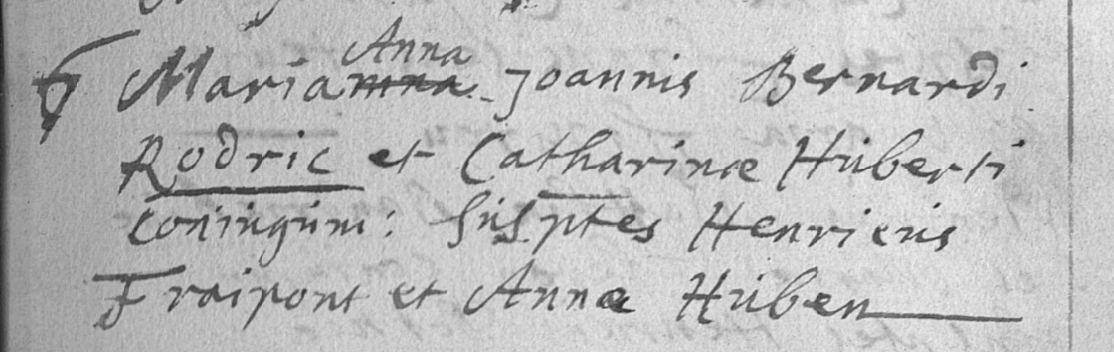 6 Maria Anna Joannis Bernardi
Rodric et Catharinæ Huberti
Coniugum: Susptes Henricus
Fraipont et Anna Huben